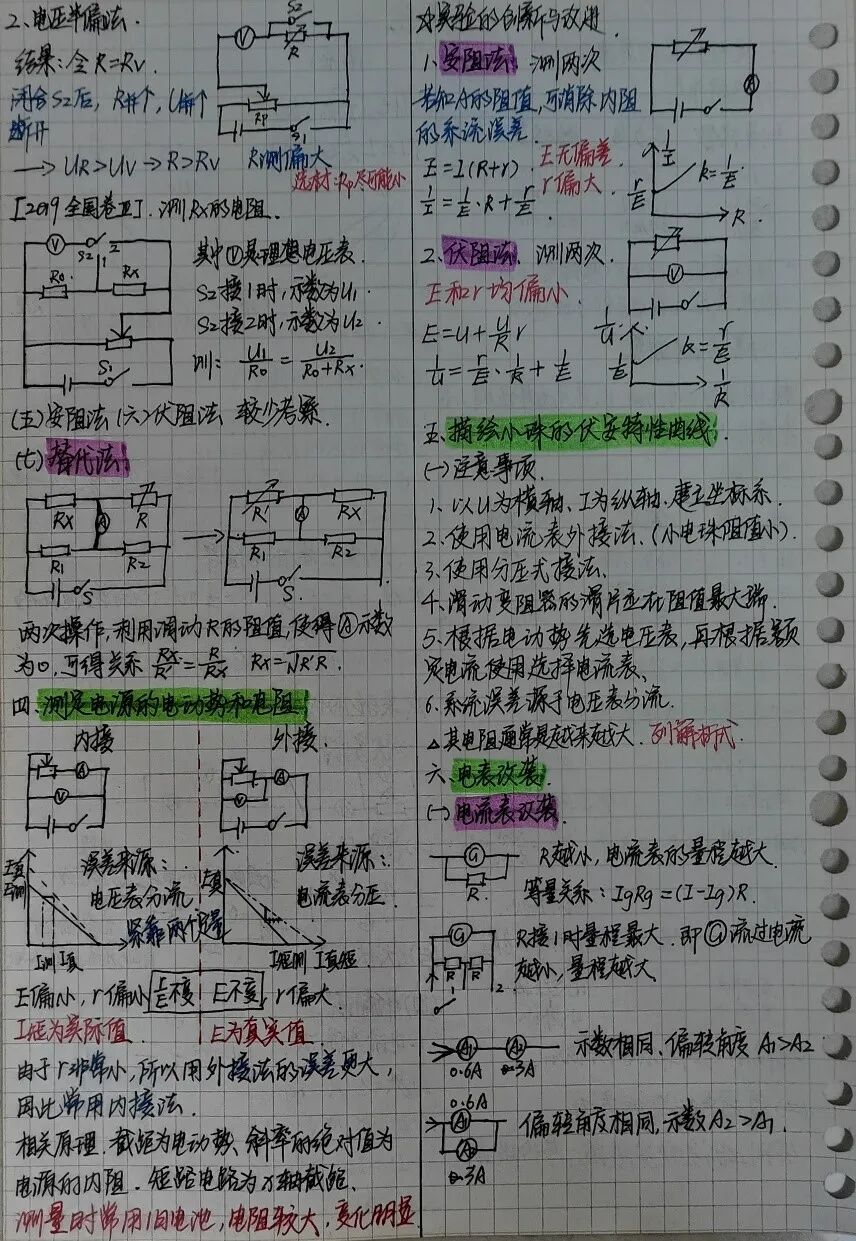 2、电压半偏法.
结果:令R=Rv.
闭合S2后, R并↑, U并↑
断开
→ UR>UV → R>RV R测偏大
选材:Rp尽可能小
V S2 R Rp S1
[2019全国卷Ⅱ]. 测Rx的电阻.
V S2 1 2 R0 Rx S1
其中Ⓥ是理想电压表.
S2接1时,示数为U1.
S2接2时,示数为U2
则: U1/R0 = U2/(R0+Rx).
(五)安阻法 (六)伏阻法 较少考察.
(七)替代法:
Rx R A R1 R2 S
R' Rx A R1 R2 S
两次操作,利用调动R的阻值,使得Ⓐ示数
为0,可得关系 Rx/R' = R/Rx Rx=√R'R.
四、测定电源的电动势和电阻
内接 外接.
A V
A V
误差来源:
电压表分流
误差来源:
电流表分压
E真
E测
E真
I测 I真
I短测 I真短.
E偏小, r偏小 E/r不变 E不变, r偏大.
I短为实际值 E为真实值.
由于r非常小,所以用外接法的误差更大,
因此常用内接法.
相关原理. 截距为电动势、斜率的绝对值为
电源的内阻. 短路电路为x轴截距.
测量时常用旧电池,电阻较大,变化明显
实验的创新与改进.
1、安阻法: 测两次
若知A的阻值,可消除内阻
的系统误差.
E=I(R+r). E无偏差.
1/I = 1/E·R + r/E r偏大.
A
1/I r/E k=1/E R.
2、伏阻法. 测两次.
E和r均偏小.
V
E=U+U/R r
1/U = r/E·1/R + 1/E
1/U 1/E k=r/E 1/R
五、描绘小珠的伏安特性曲线:
(一)注意事项.
1、以U为横轴、I为纵轴. 建立坐标系.
2、使用电流表外接法、(小电珠阻值小).
3、使用分压式接法、
4、滑动变阻器的滑片应在阻值最大端.
5、根据电动势先选电压表,再根据额
定电流使用选择电流表、
6、系统误差源于电压表分流.
△其电阻通常是越来越大. 列解析式.
六、电表改装.
(一)电流表改装.
G R
R越小,电流表的量程越大.
等量关系: IgRg=(I-Ig)R.
G R R 1 2
R接1时量程最大. 即Ⓖ流过电流
越小,量程越大
A1 A2 示数相同、偏转角度 A1>A2
0.6A 3A
0.6A
A1 偏转角度相同,示数A2>A1.
A2
3A